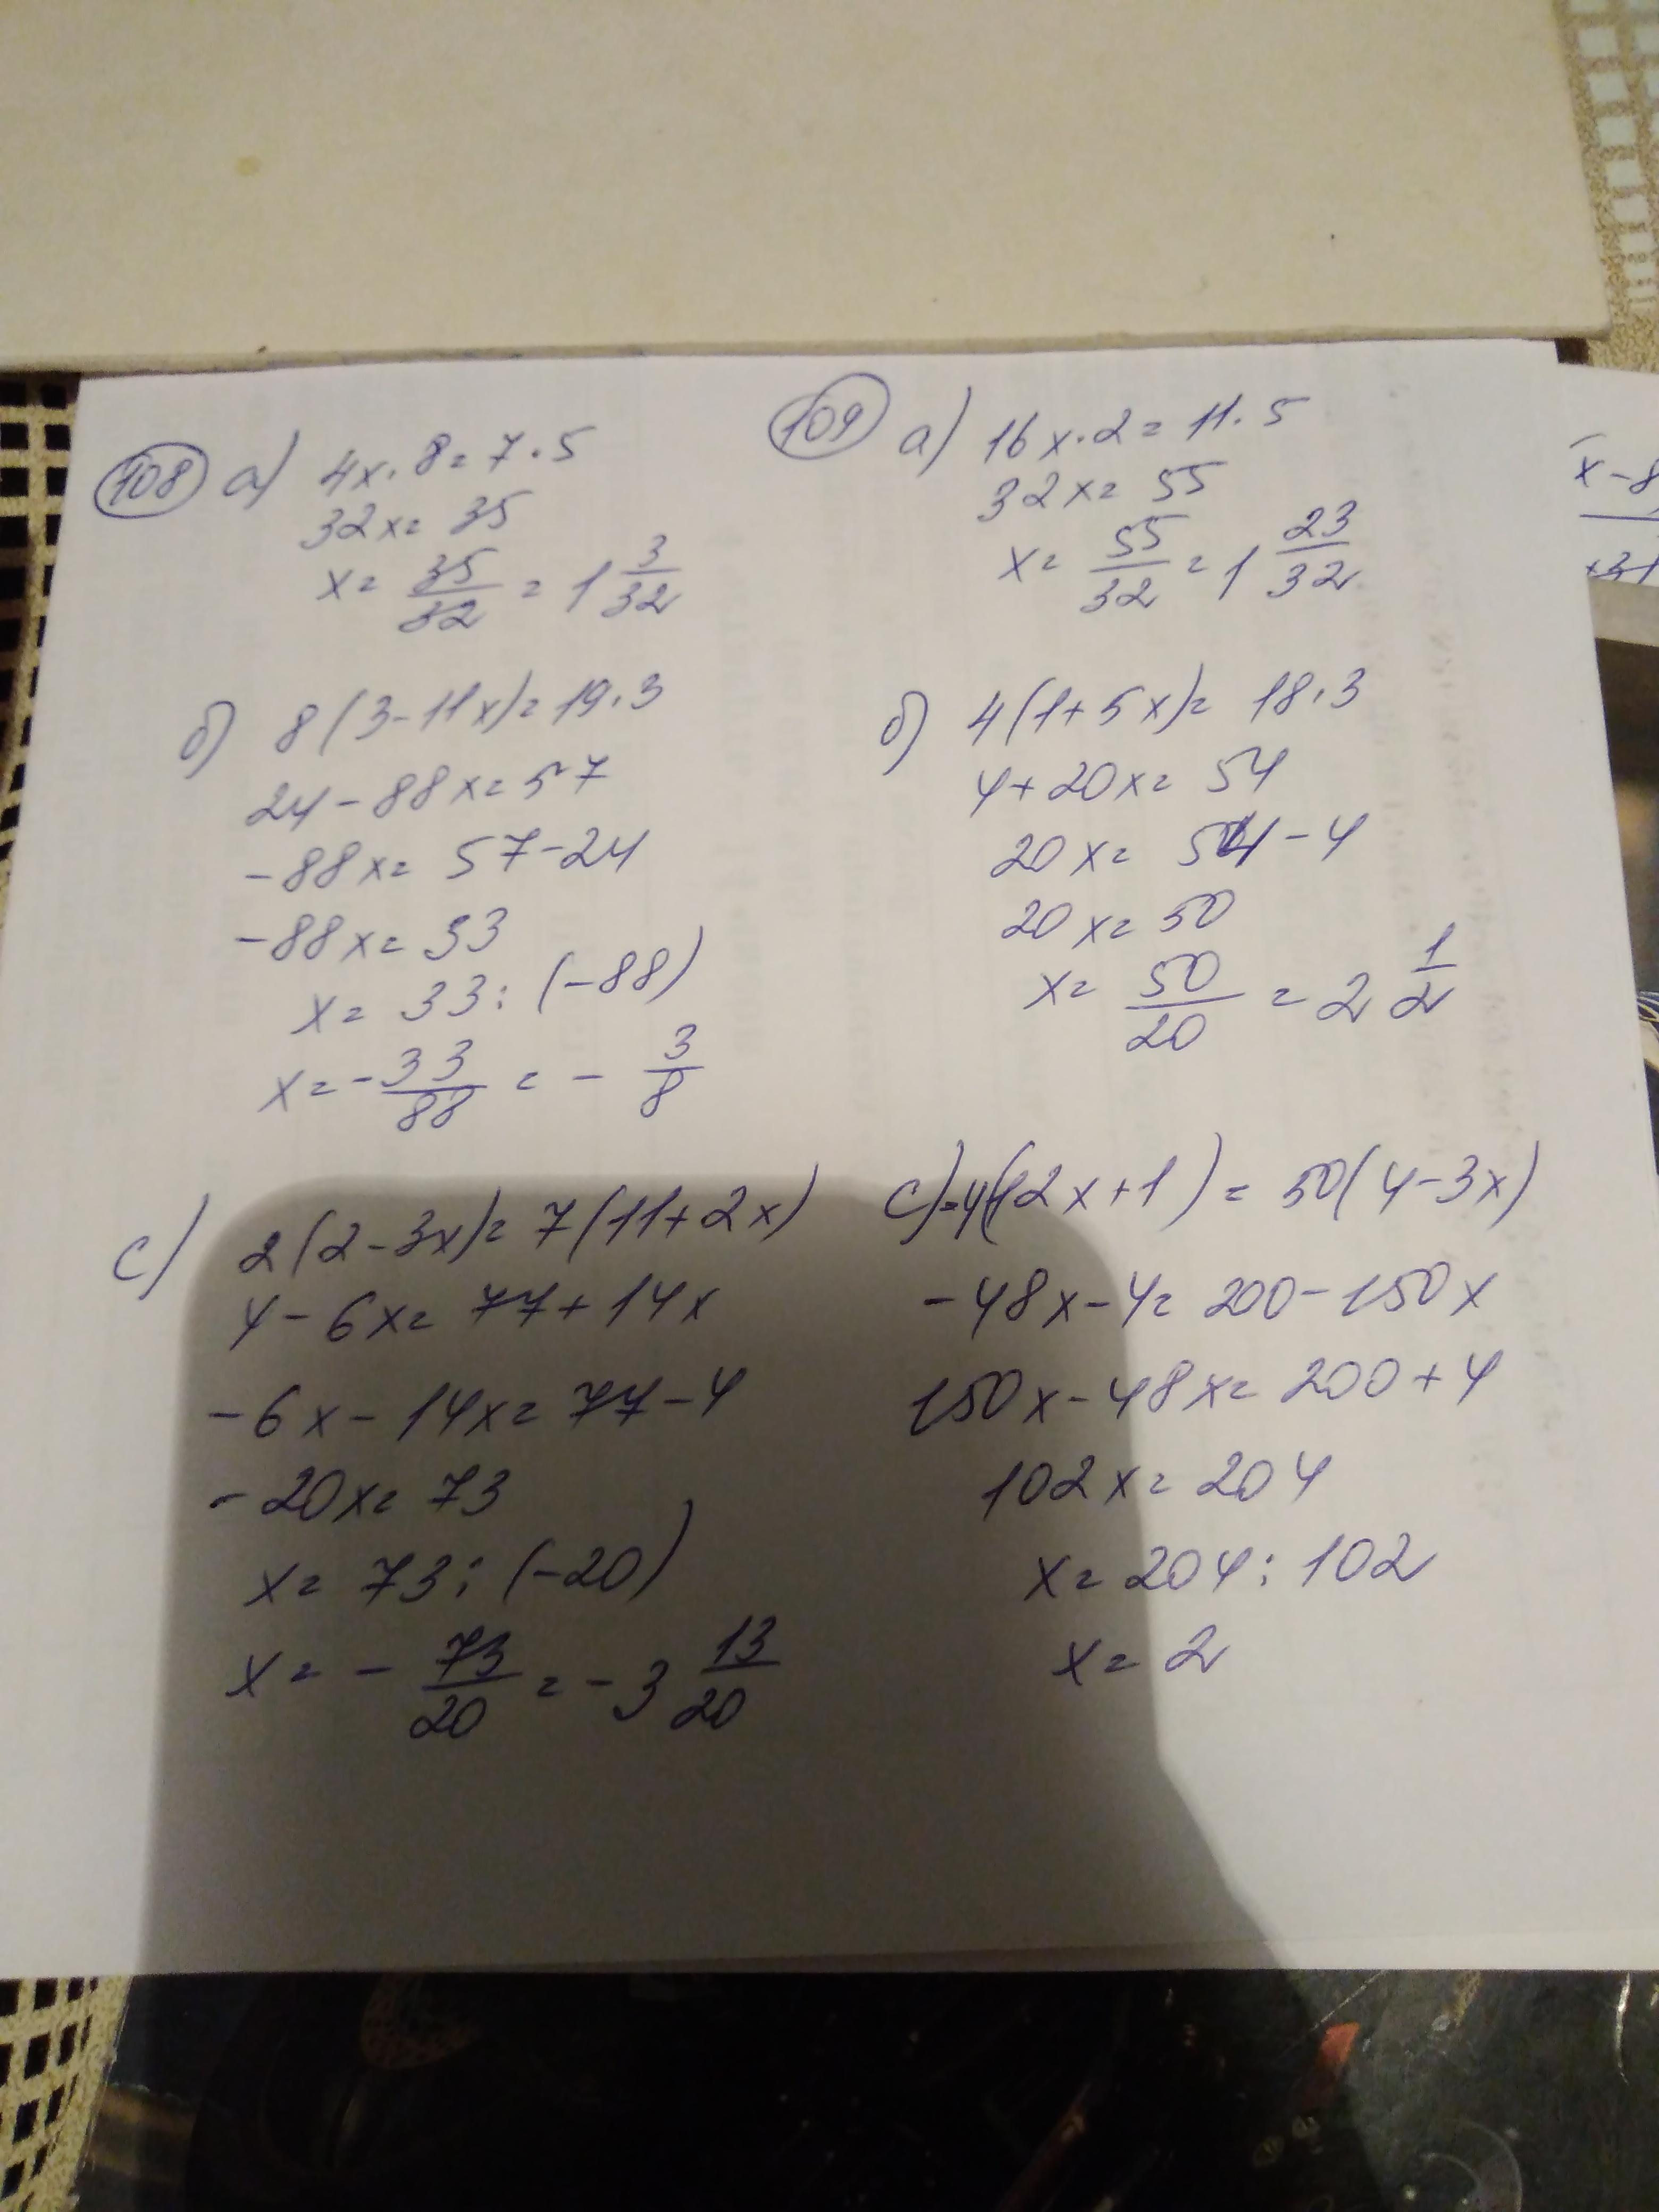 108 а) 4x · 8 = 7 · 5
32x = 35
x = 35/32 = 1 3/32
б) 8(3-11x) = 19 · 3
24 - 88x = 57
-88x = 57 - 24
-88x = 33
x = 33 : (-88)
x = -33/88 = - 3/8
с) 2(2-3x) = 7(11+2x)
4 - 6x = 77 + 14x
-6x - 14x = 77 - 4
-20x = 73
x = 73 : (-20)
x = - 73/20 = -3 13/20
109 а) 16x · 2 = 11 · 5
32x = 55
x = 55/32 = 1 23/32
б) 4(1+5x) = 18 · 3
4 + 20x = 54
20x = 54 - 4
20x = 50
x = 50/20 = 2 1/2
с) -4(12x+1) = 50(4-3x)
-48x - 4 = 200 - 150x
150x - 48x = 200 + 4
102x = 204
x = 204 : 102
x = 2
x - 8